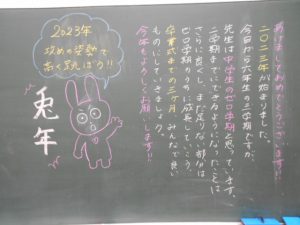 あけましておめでとうございます!!
二〇二三年が始まりました。
今日から六年生の三学期ですが、
先生は中学生のゼロ学期と思っています。
二学期までにできるようになったことは
さらに良くし、まだ足りない部分は
ゼロ学期のうちに成長していこう。
卒業式までの三ヶ月、みんなで良い
ものにしていきましょう。
今年もよろしくお願いします!!
2023年
攻めの姿勢で
高く跳ぼう!!
兎年